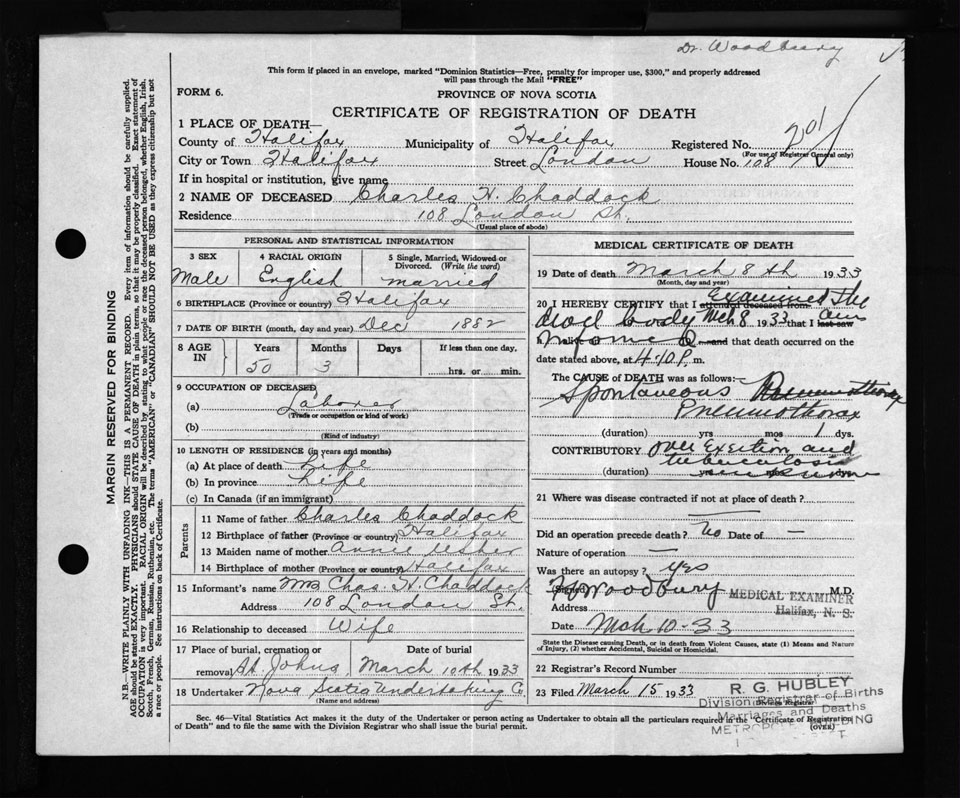 Dr. Woodbury
This form if placed in an envelope, marked "Dominion Statistics—Free, penalty for improper use, $300," and properly addressed
will pass through the Mail "FREE"
FORM 6.
PROVINCE OF NOVA SCOTIA
CERTIFICATE OF REGISTRATION OF DEATH
1 PLACE OF DEATH—
County of Halifax Municipality of Halifax Registered No. 201
(For use of Registrar General only)
City or Town Halifax Street London House No. 108
If in hospital or institution, give name
2 NAME OF DECEASED Charles H. Chaddock
Residence 108 London St.
(Usual place of abode)
PERSONAL AND STATISTICAL INFORMATION
3 SEX 4 RACIAL ORIGIN 5 Single, Married, Widowed or
Divorced. (Write the word)
Male English married
6 BIRTHPLACE (Province or country) Halifax
7 DATE OF BIRTH (month, day and year) Dec 1882
8 AGE IN Years Months Days If less than one day.
50 3 hrs. or min.
9 OCCUPATION OF DECEASED
(a) Laborer
(Trade or occupation or kind of work)
(b)
(Kind of industry)
10 LENGTH OF RESIDENCE (in years and months)
(a) At place of death Life
(b) In province Life
(c) In Canada (if an immigrant)
Parents
11 Name of father Charles Chaddock
12 Birthplace of father (Province or country) Halifax
13 Maiden name of mother Annie Usher
14 Birthplace of mother (Province or country) Halifax
15 Informant's name Mrs Chas. H. Chaddock
Address 108 London St.
16 Relationship to deceased Wife
17 Place of burial, cremation or removal Date of burial
St. Johns March 10th 1933
18 Undertaker Nova Scotia Undertaking Co.
(Name and address)
MEDICAL CERTIFICATE OF DEATH
19 Date of death March 8th 1933
(Month, day and year)
20 I HEREBY CERTIFY that I attended deceased from Examined the
dead body Mch 8 1933 that I last saw
and that death occurred on the
date stated above, at 4.40 P. m.
The CAUSE of DEATH was as follows:—
Spontaneous Pneumothorax
Pneumothorax
(duration) yrs mos 1 dys.
CONTRIBUTORY over Exertion and
tuberculosis
(duration)
21 Where was disease contracted if not at place of death?
Did an operation precede death? No Date of —
Nature of operation —
Was there an autopsy? yes
(Signed) Woodbury M.D.
MEDICAL EXAMINER
Address Halifax, N. S.
Date Mch 10-33
State the Disease causing Death, or in death from Violent Causes, state (1) Means and
Nature of Injury, (2) whether Accidental, Suicidal or Homicidal.
22 Registrar's Record Number
23 Filed March 15 1933
R. G. HUBLEY
Division Registrar
Division Registrar of Births
Marriages and Deaths
Sec. 46—Vital Statistics Act makes it the duty of the Undertaker or person acting as Undertaker to obtain all the particulars required in the Certificate of Registration
of Death" and to file the same with the Division Registrar who shall issue the burial permit.
(OVER)
MARGIN RESERVED FOR BINDING
N.B.—WRITE PLAINLY WITH UNFADING INK—THIS IS A PERMANENT RECORD. Every item of information should be carefully supplied.
AGE should be stated EXACTLY. PHYSICIANS should STATE CAUSE OF DEATH in plain terms, so that it may be properly classified. Exact statement of
OCCUPATION is very important. RACIAL ORIGIN will be described by stating to what people or race the deceased person belonged, whether English, Irish,
Scotch, French, German, Russian, Ruthenian, etc. The terms "AMERICAN" or "CANADIAN" SHOULD NOT BE USED as they express citizenship but not
a race or people. See instructions on back of Certificate.